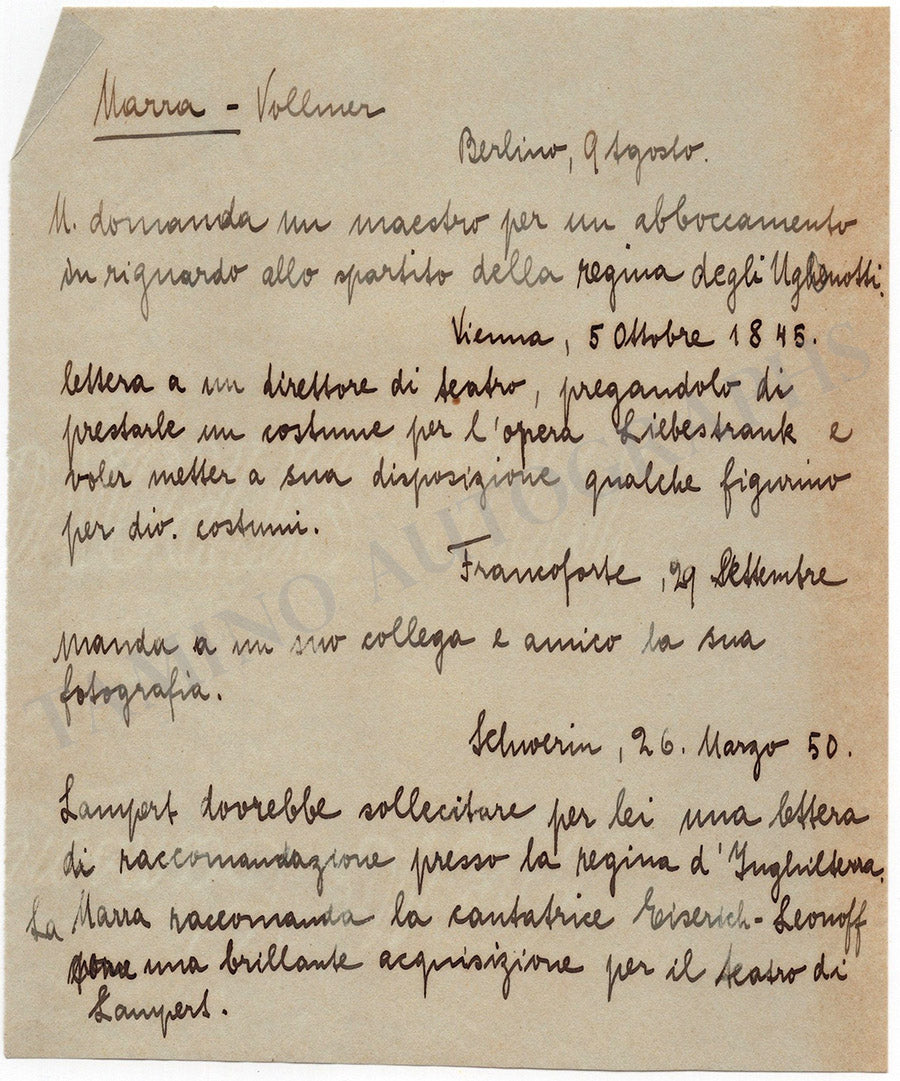 Marra - Vollmer
Berlino, 9 Agosto.
M. domanda un maestro per un abboccamento
in riguardo allo spartito della regina degli Ughonotti.
Vienna, 5 Ottobre 1845.
lettera a un direttore di teatro, pregandolo di
prestarle un costume per l'opera Liebestrank e
voler metter a sua disposizione qualche figurino
per div. costumi.
Francoforte, 29 Settembre
manda a un suo collega e amico la sua
fotografia.
Schwerin, 26. Marzo 50.
Lampert dovrebbe sollecitare per lei una lettera
di raccomandazione presso la regina d'Inghilterra.
La Marra raccomanda la cantatrice Eiserich-Leonoff
una brillante acquisizione per il teatro di
Lampert.
TAMINO AUTOGRAPHS